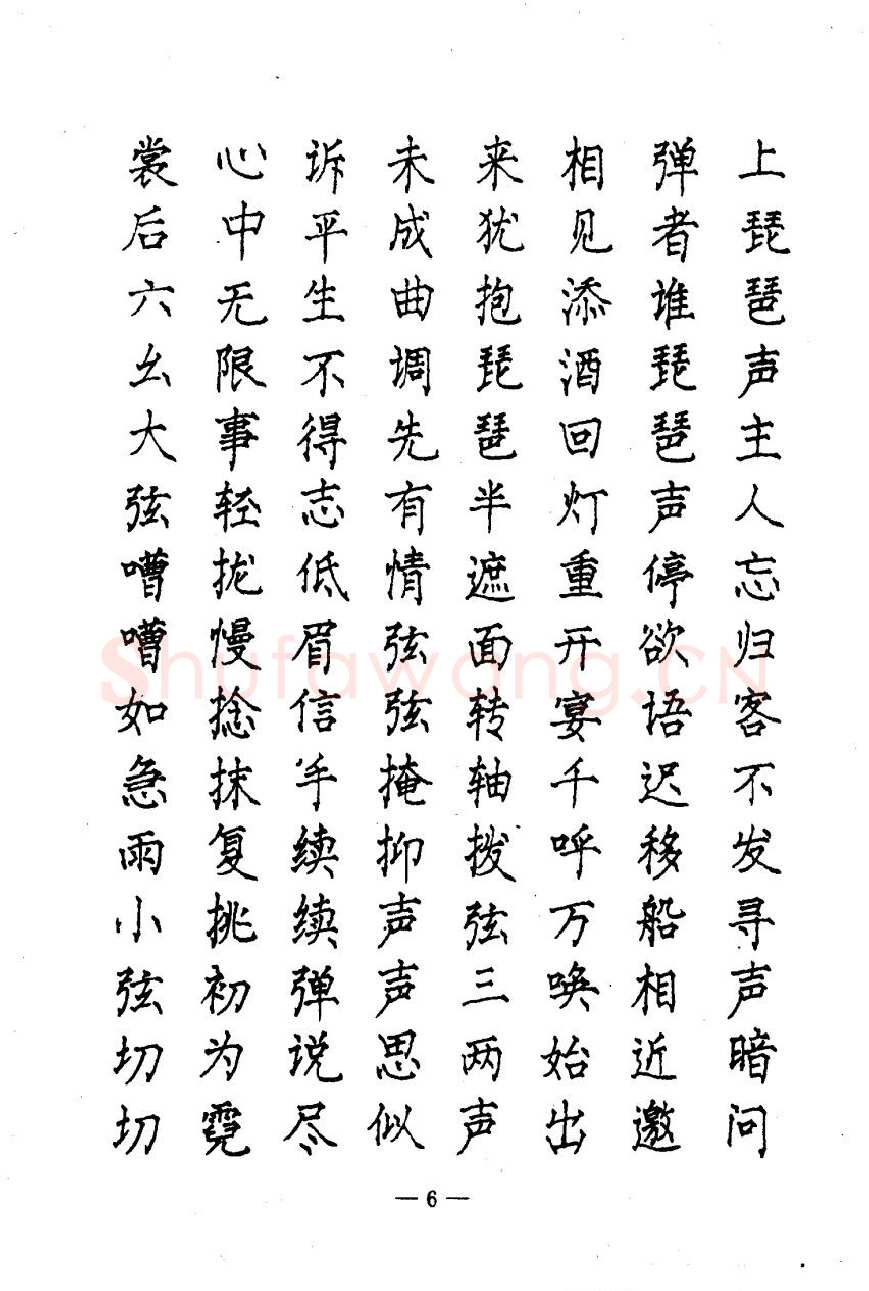 上琵琶声主人忘归客不发寻声暗问
弹者谁琵琶声停欲语迟移船相近邀
相见添酒回灯重开宴千呼万唤始出
来犹抱琵琶半遮面转轴拨弦三两声
未成曲调先有情弦弦掩抑声声思似
诉平生不得志低眉信手续续弹说尽
心中无限事轻拢慢捻抹复挑初为霓
裳后六幺大弦嘈嘈如急雨小弦切切
— 6 —
Shufawang.CN